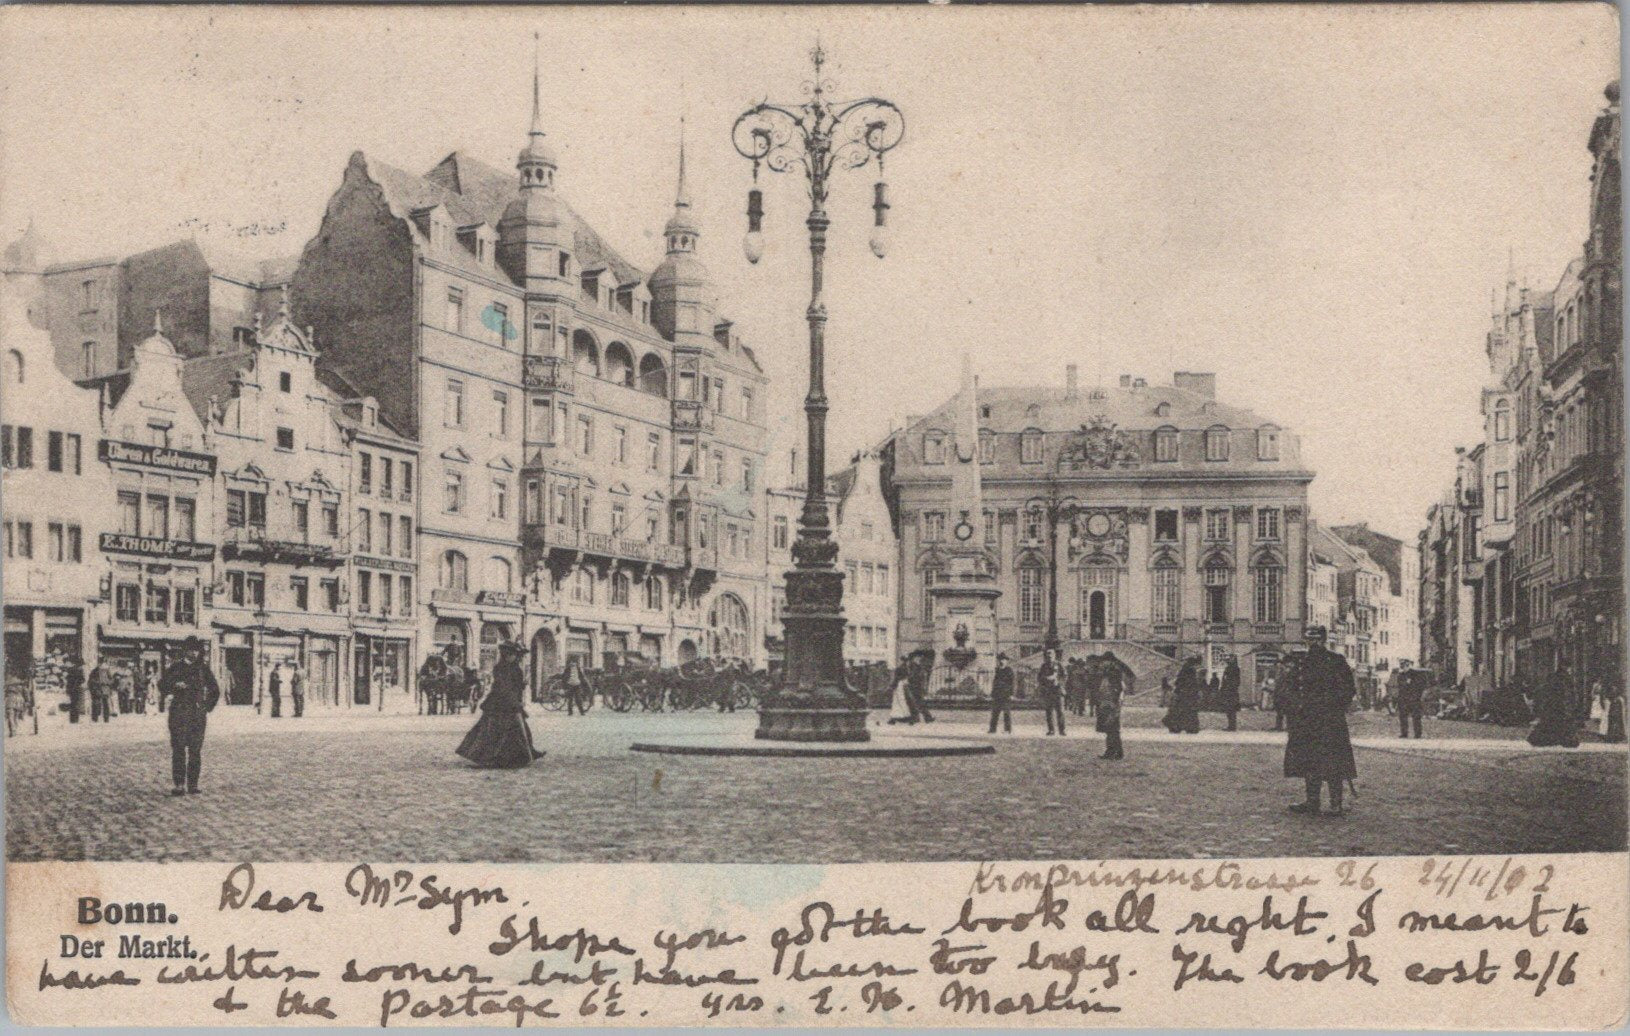 Uhren & Goldwaren.
E. THOMÉ
Kronprinzenstrasse 26 24/11/02
Dear Mr Sym.
Bonn.
Der Markt.
I hope you got the book all right. I meant to
have written sooner but have been too busy. The book cost 2/6
& the Postage 6½. yrs. E. H. Martin